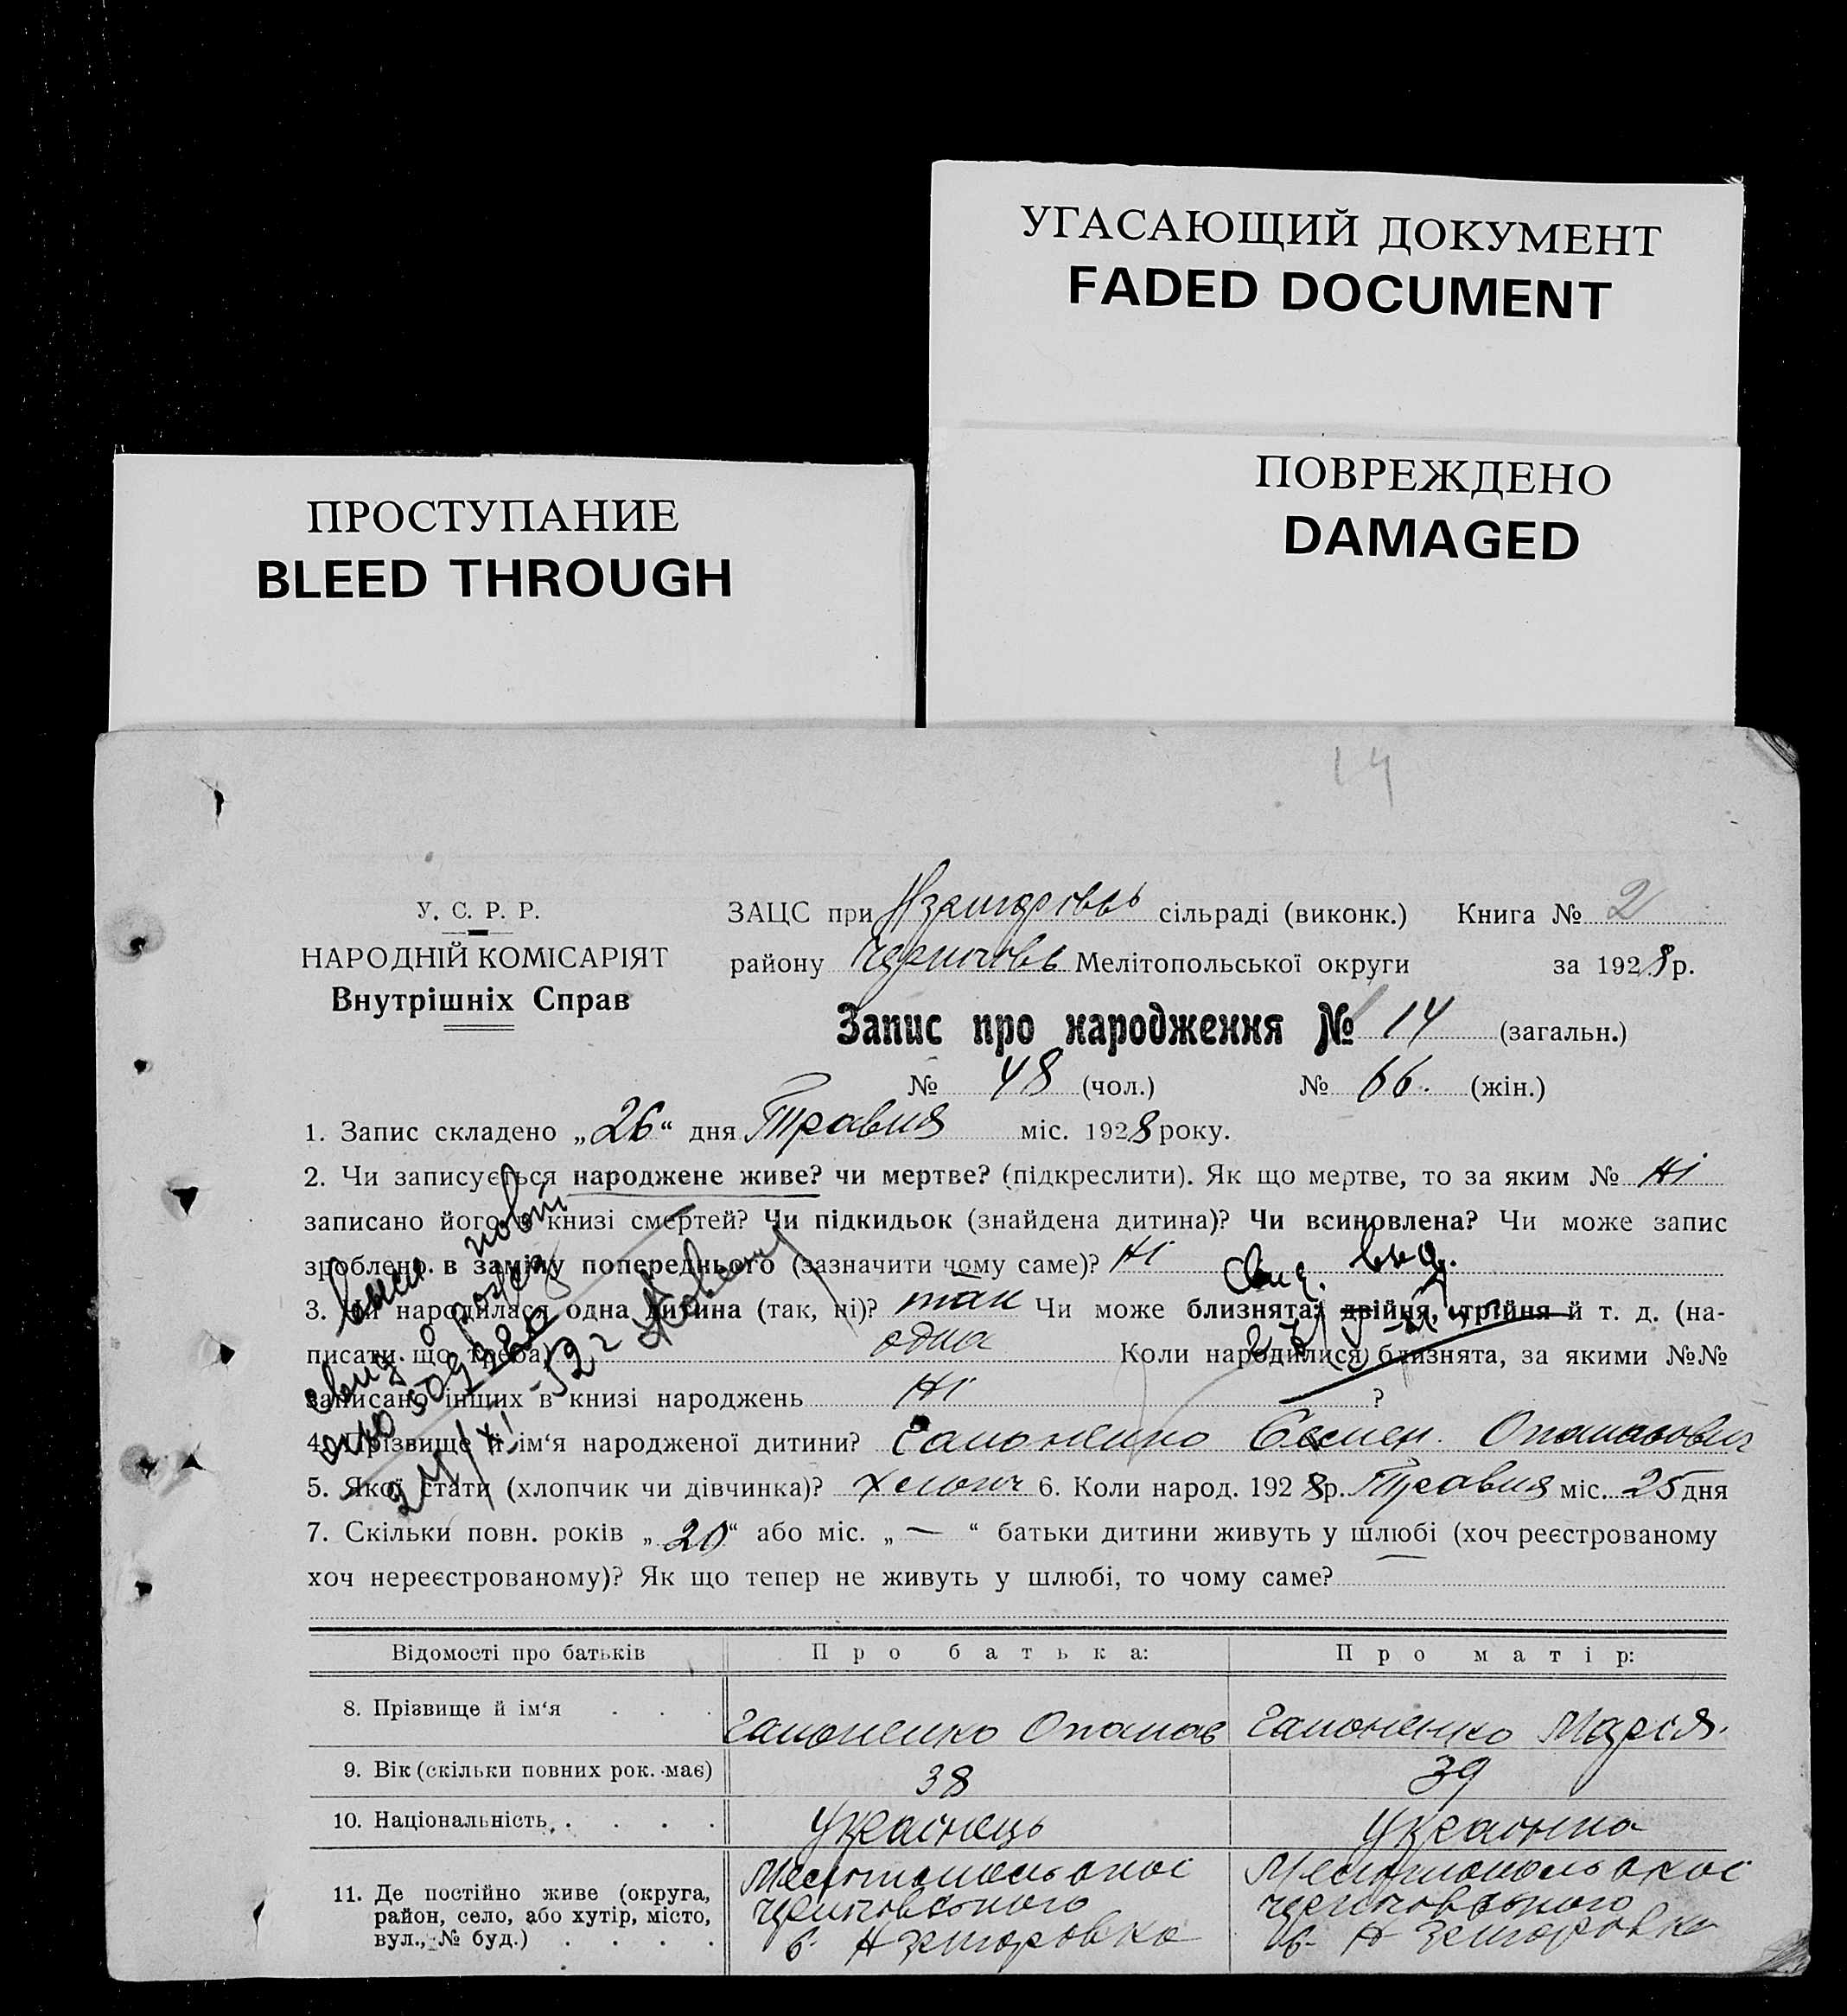 УГАСАЮЩИЙ ДОКУМЕНТ
FADED DOCUMENT
ПОВРЕЖДЕНО
DAMAGED
ПРОСТУПАНИЕ
BLEED THROUGH
14
У. С. Р. Р.
НАРОДНІЙ КОМІСАРІЯТ
Внутрішніх Справ
ЗАЦС при сільраді (виконк.) Книга № 2
району Мелітопольської округи за 1928 р.
Запис про народження № 14 (загальн.)
№ 48 (чол.) № 66. (жін.)
1. Запис складено „26“ дня Травня міс. 1928 року.
2. Чи записується народжене живе? чи мертве? (підкреслити). Як що мертве, то за яким № Ні
записано його в книзі смертей? Чи підкидьок (знайдена дитина)? Чи всиновлена? Чи може запис
зроблено в заміну попереднього (зазначити чому саме)? Ні
3. Чи народилася одна дитина (так, ні)? так Чи може близнята: двійня, трійня й т. д. (на-
писати що треба) одна Коли народилися близнята, за якими №№
записано інших в книзі народжень Ні ?
4. Прізвище й ім‘я народженої дитини? Гапоненко Семен Опанасович
5. Якої стати (хлопчик чи дівчинка)? хлопч 6. Коли народ. 1928 р. Травня міс. 25 дня
7. Скільки повн. років „20“ або міс. „—“ батьки дитини живуть у шлюбі (хоч реєстрованому
хоч нереєстрованому)? Як що тепер не живуть у шлюбі, то чому саме?
Відомості про батьків Про батька: Про матір:
8. Прізвище й ім‘я Гапоненко Опанас Гапоненко Марія.
9. Вік (скільки повних рок. має) 38 39
10. Національність Українець Українка
11. Де постійно живе (округа,
район, село, або хутір, місто,
вул., № буд.)